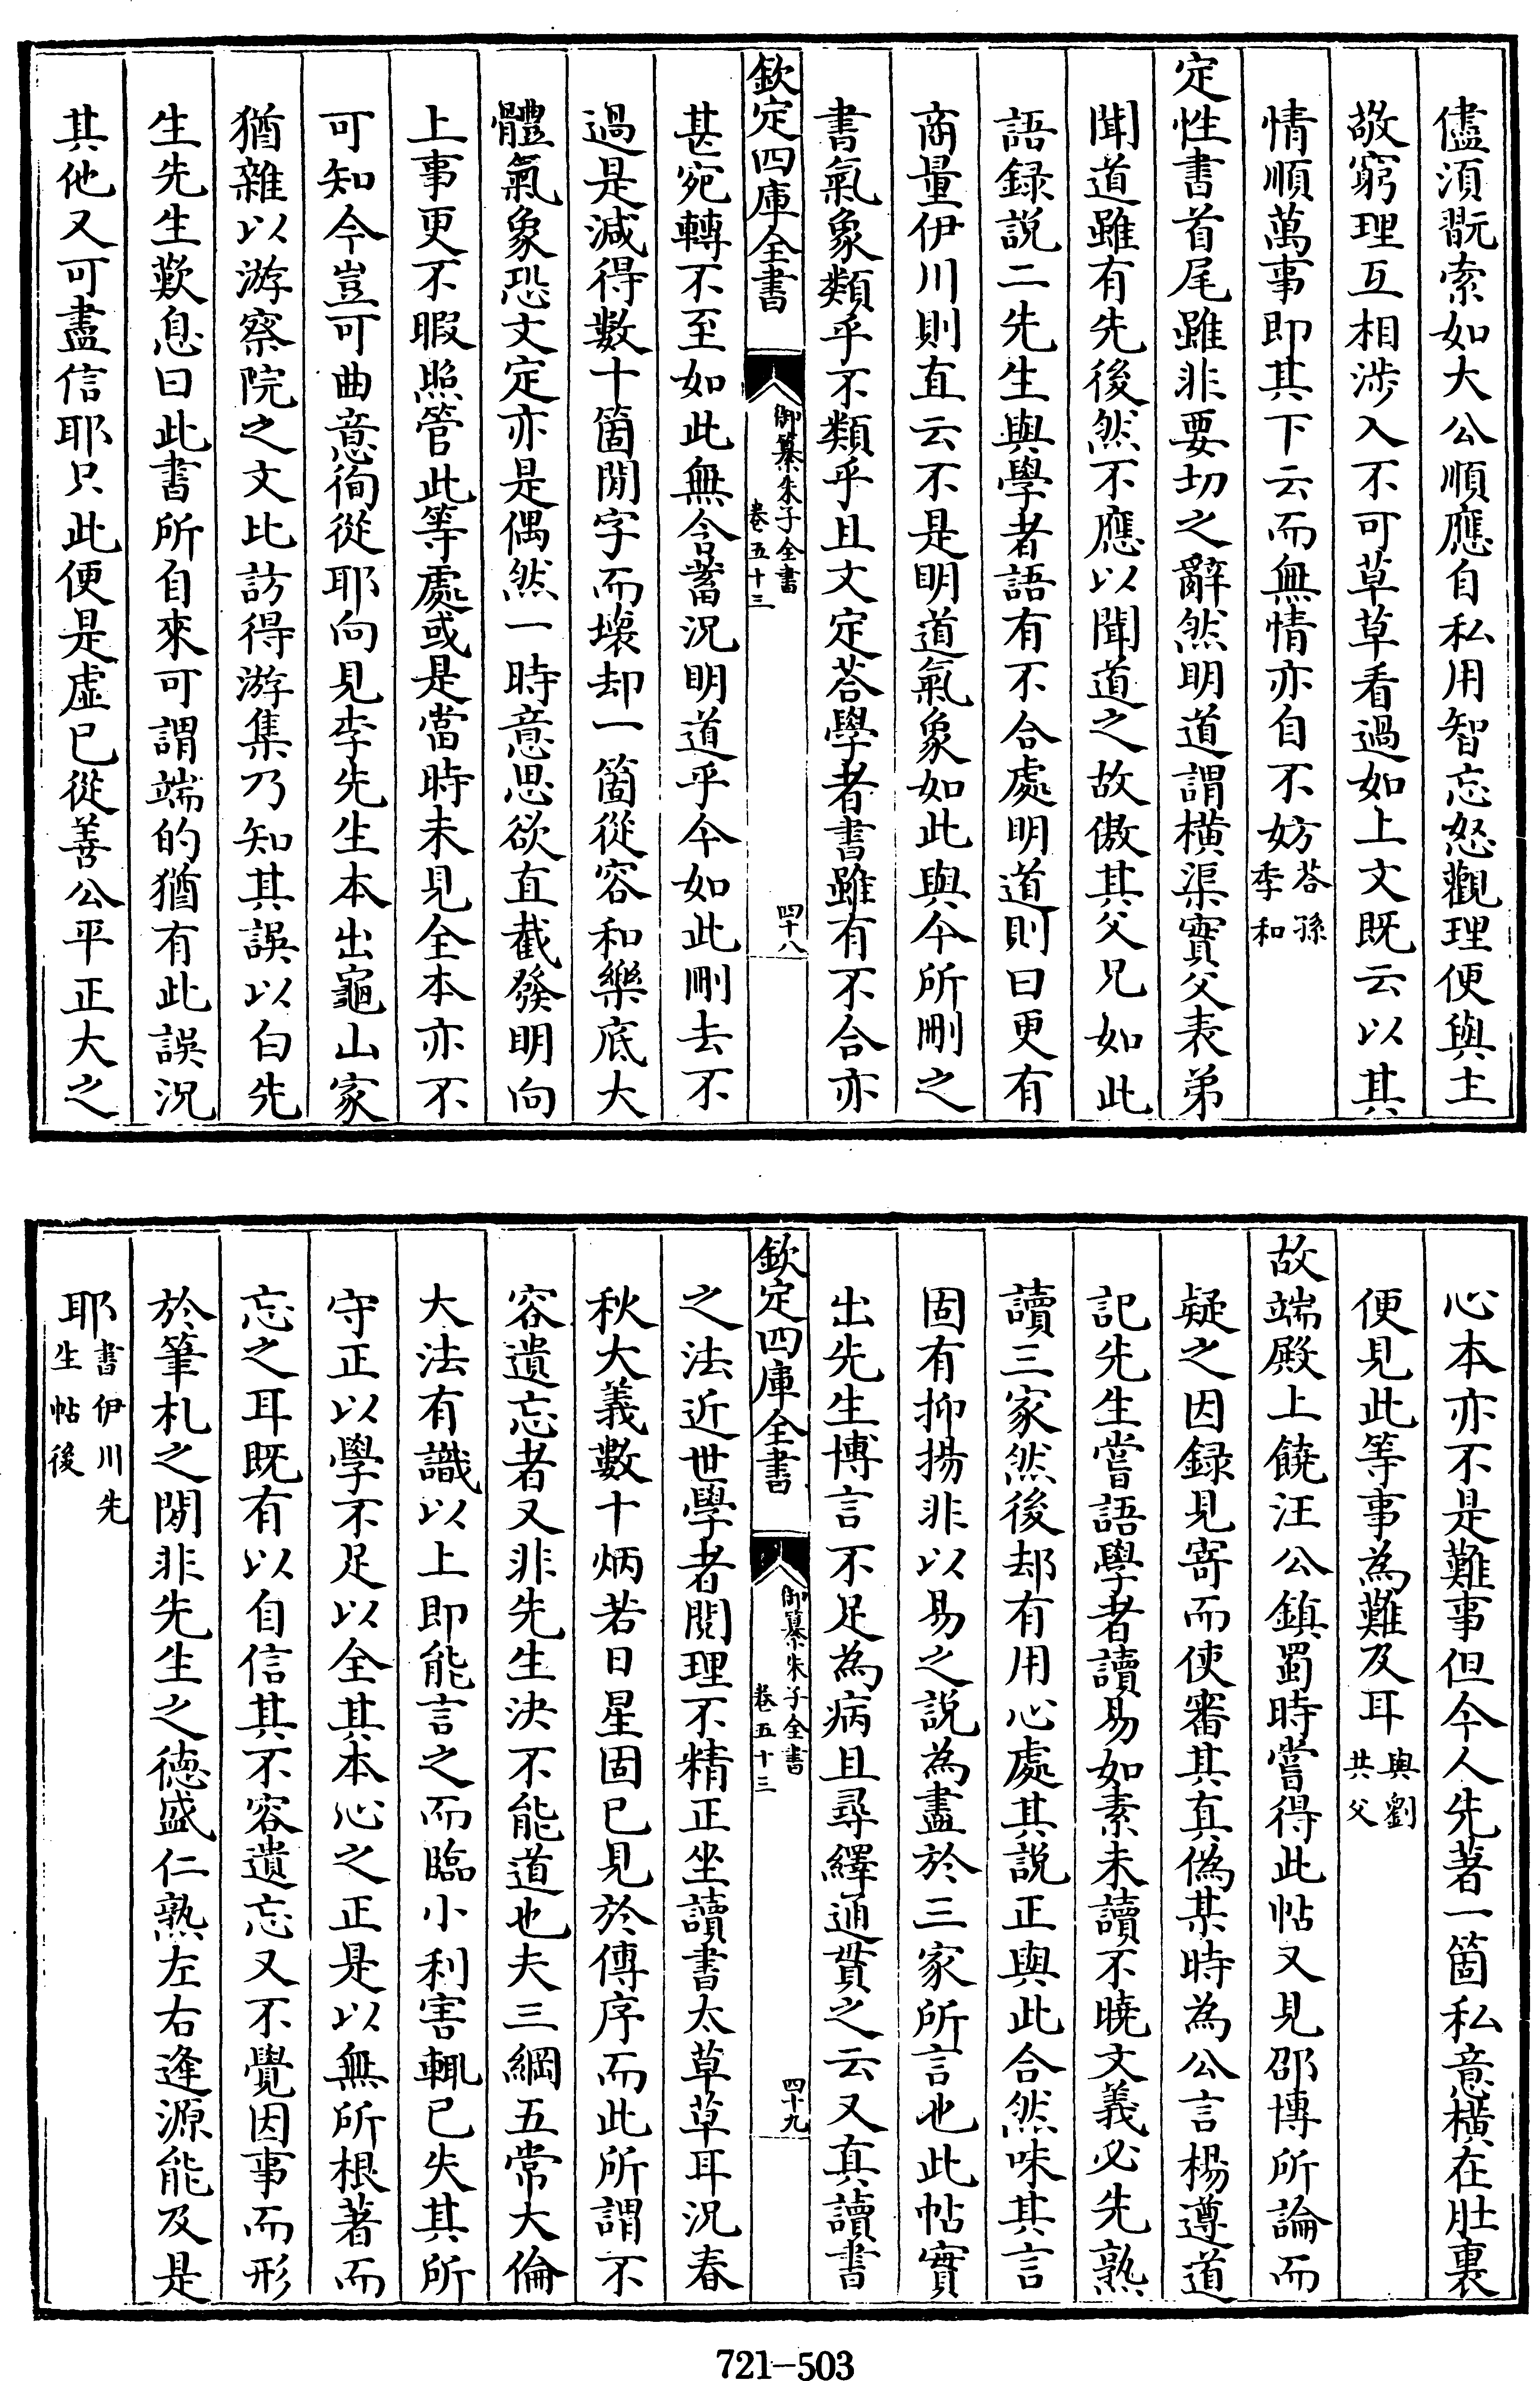 儘須翫索如大公順應自私用智忘怒觀理便與主
敬窮理互相涉入不可草草看過如上文既云以其
情順萬事即其下云而無情亦自不妨答孫季和
定性書首尾雖非要切之辭然明道謂橫渠實父表弟
聞道雖有先後然不應以聞道之故傲其父兄如此
語録説二先生與學者語有不合處明道則曰更有
商量伊川則直云不是明道氣象如此與今所刪之
書氣象類乎不類乎且文定荅學者書雖有不合亦
欽定四庫全書
御纂朱子全書
卷五十三
四十八
甚宛轉不至如此無含蓄況明道乎今如此刪去不
過是減得數十箇閒字而壞却一箇從容和樂底大
體氣象恐文定亦是偶然一時意思欲直截發明向
上事更不暇照管此等處或是當時未見全本亦不
可知今豈可曲意徇從耶向見李先生本出龜山家
猶雜以游察院之文比訪得游集乃知其誤以白先
生先生歎息曰此書所自來可謂端的猶有此誤況
其他又可盡信耶只此便是虛已從善公平正大之
心本亦不是難事但今人先著一箇私意橫在肚裏
便見此等事為難及耳與劉共父
故端殿上饒汪公鎮蜀時嘗得此帖又見邵博所論而
疑之因録見寄而使審其真偽某時為公言楊遵道
記先生嘗語學者讀易如素未讀不曉文義必先熟
讀三家然後却有用心處其説正與此合然味其言
固有抑揚非以易之説為盡於三家所言也此帖實
出先生博言不足為病且尋繹通貫之云又真讀書
欽定四庫全書
御纂朱子全書
卷五十三
四十九
之法近世學者閱理不精正坐讀書太草草耳況春
秋大義數十炳若日星固已見於傳序而此所謂不
容遺忘者又非先生決不能道也夫三綱五常大倫
大法有識以上即能言之而臨小利害輒已失其所
守正以學不足以全其本心之正是以無所根著而
忘之耳既有以自信其不容遺忘又不覺因事而形
於筆札之閒非先生之德盛仁熟左右逢源能及是
耶書伊川先生帖後
721-503